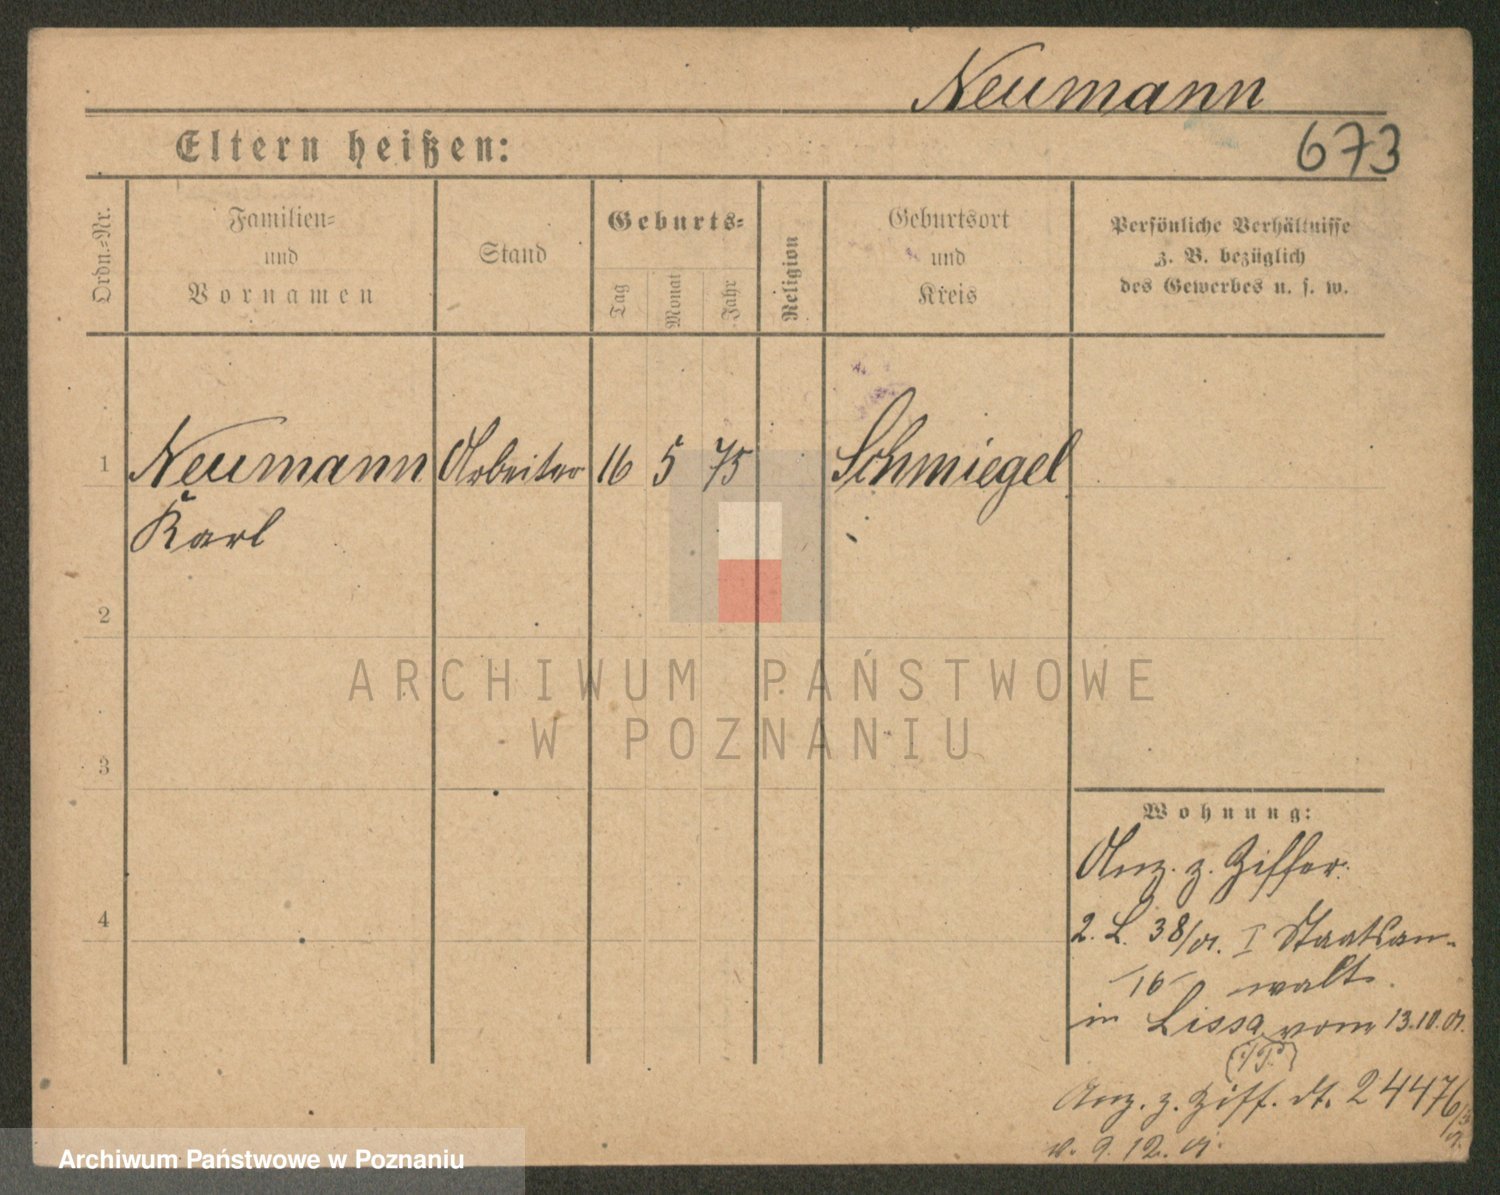 Neumann
673
Eltern heißen:
Ordn.-Nr.
Familien-
und
Vornamen
Stand
Geburts-
Tag
Monat
Jahr
Religion
Geburtsort
und
Kreis
Persönliche Verhältnisse
z. B. bezüglich
des Gewerbes u. s. w.
1 Neumann Arbeiter 16 5 75 Schmiegel
Karl
2
3
4
Wohnung:
Anz. z. Ziffer.
2. L. 38/01. I Staatsan-
16 walt.
in Lissa vom 13.10.01.
Anz. z. Ziff. 24476
v. 9.12.01.
ARCHIWUM PAŃSTWOWE
W POZNANIU
Archiwum Państwowe w Poznaniu